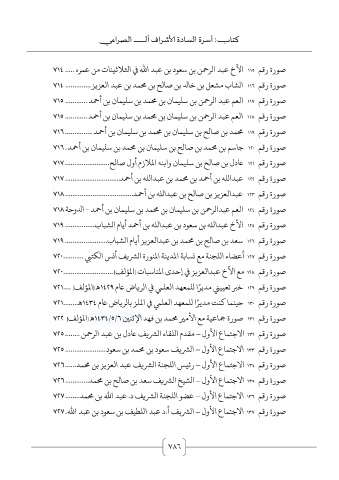 كتاب: أسرة السادة الأشراف آل الصرامي
صورة رقم ١١٥ الأخ عبد الرحمن بن سعود بن عبد الله في الثلاثينات من عمره ..... ٧١٤
صورة رقم ١١٦ الشاب مشعل بن خالد بن صالح بن محمد بن عبد العزيز ............. ٧١٤
صورة رقم ١١٧ العم عبد الرحمن بن سليمان بن محمد بن سليمان بن أحمد ........... ٧١٥
صورة رقم ١١٨ العم عبد الرحمن بن سليمان بن محمد بن سليمان بن أحمد ........... ٧١٥
صورة رقم ١١٩ محمد بن صالح بن سليمان بن محمد بن سليمان بن أحمد .............. ٧١٦
صورة رقم ١٢٠ جاسم بن محمد بن صالح بن سليمان بن محمد بن سليمان بن أحمد. ٧١٦
صورة رقم ١٢١ عادل بن صالح بن سليمان وابنه الملازم أول صالح...................... ٧١٧
صورة رقم ١٢٢ عبدالله بن أحمد بن محمد بن عبدالله بن أحمد........................... ٧١٧
صورة رقم ١٢٣ عبدالعزيز بن صالح بن عبدالله بن أحمد.................................. ٧١٨
صورة رقم ١٢٤ العم عبدالرحمن بن سليمان بن محمد بن سليمان بن أحمد - الدوحة ٧١٨
صورة رقم ١٢٥ الأخ عبدالله بن سعود بن عبدالله بن أحمد أيام الشباب............... ٧١٩
صورة رقم ١٢٦ سعد بن صالح بن محمد بن عبدالعزيز أيام الشباب.................... ٧١٩
صورة رقم ١٢٧ أعضاء اللجنة مع نسابة المدينة المنورة الشريف أنس الكتبي ........... ٧٢٠
صورة رقم ١٢٨ مع الأخ عبدالعزيز في إحدى المناسبات (المؤلف)......................... ٧٢٠
صورة رقم ١٢٩ خبر تعييني مديرًا للمعهد العلمي في الرياض عام ١٤٢٩هـ(المؤلف) ..... ٧٢١
صورة رقم ١٣٠ حينما كنت مديرًا للمعهد العلمي في الملز بالرياض عام ١٤٣٤هـ........ ٧٢١
صورة رقم ١٣١ صورة جماعية مع الأمير محمد بن فهد الإثنين ١٤٣٤/٥/٦هـ(المؤلف) ٧٢٢
صورة رقم ١٣٢ الاجتماع الأول – مقدم اللقاء الشريف عادل بن عبد الرحمن ....... ٧٢٥
صورة رقم ١٣٣ الاجتماع الأول – الشريف سعود بن محمد بن سعود................... ٧٢٥
صورة رقم ١٣٤ الاجتماع الأول – رئيس اللجنة الشريف عبد العزيز بن محمد...... ٧٢٦
صورة رقم ١٣٥ الاجتماع الأول – الشيخ الشريف سعد بن صالح بن محمد............ ٧٢٦
صورة رقم ١٣٦ الاجتماع الأول – عضو اللجنة الشريف د. عبد الله بن محمد......... ٧٢٧
صورة رقم ١٣٧ الاجتماع الأول – الشريف أ.د عبد اللطيف بن سعود بن عبد الله. ٧٢٧
٧٨٦